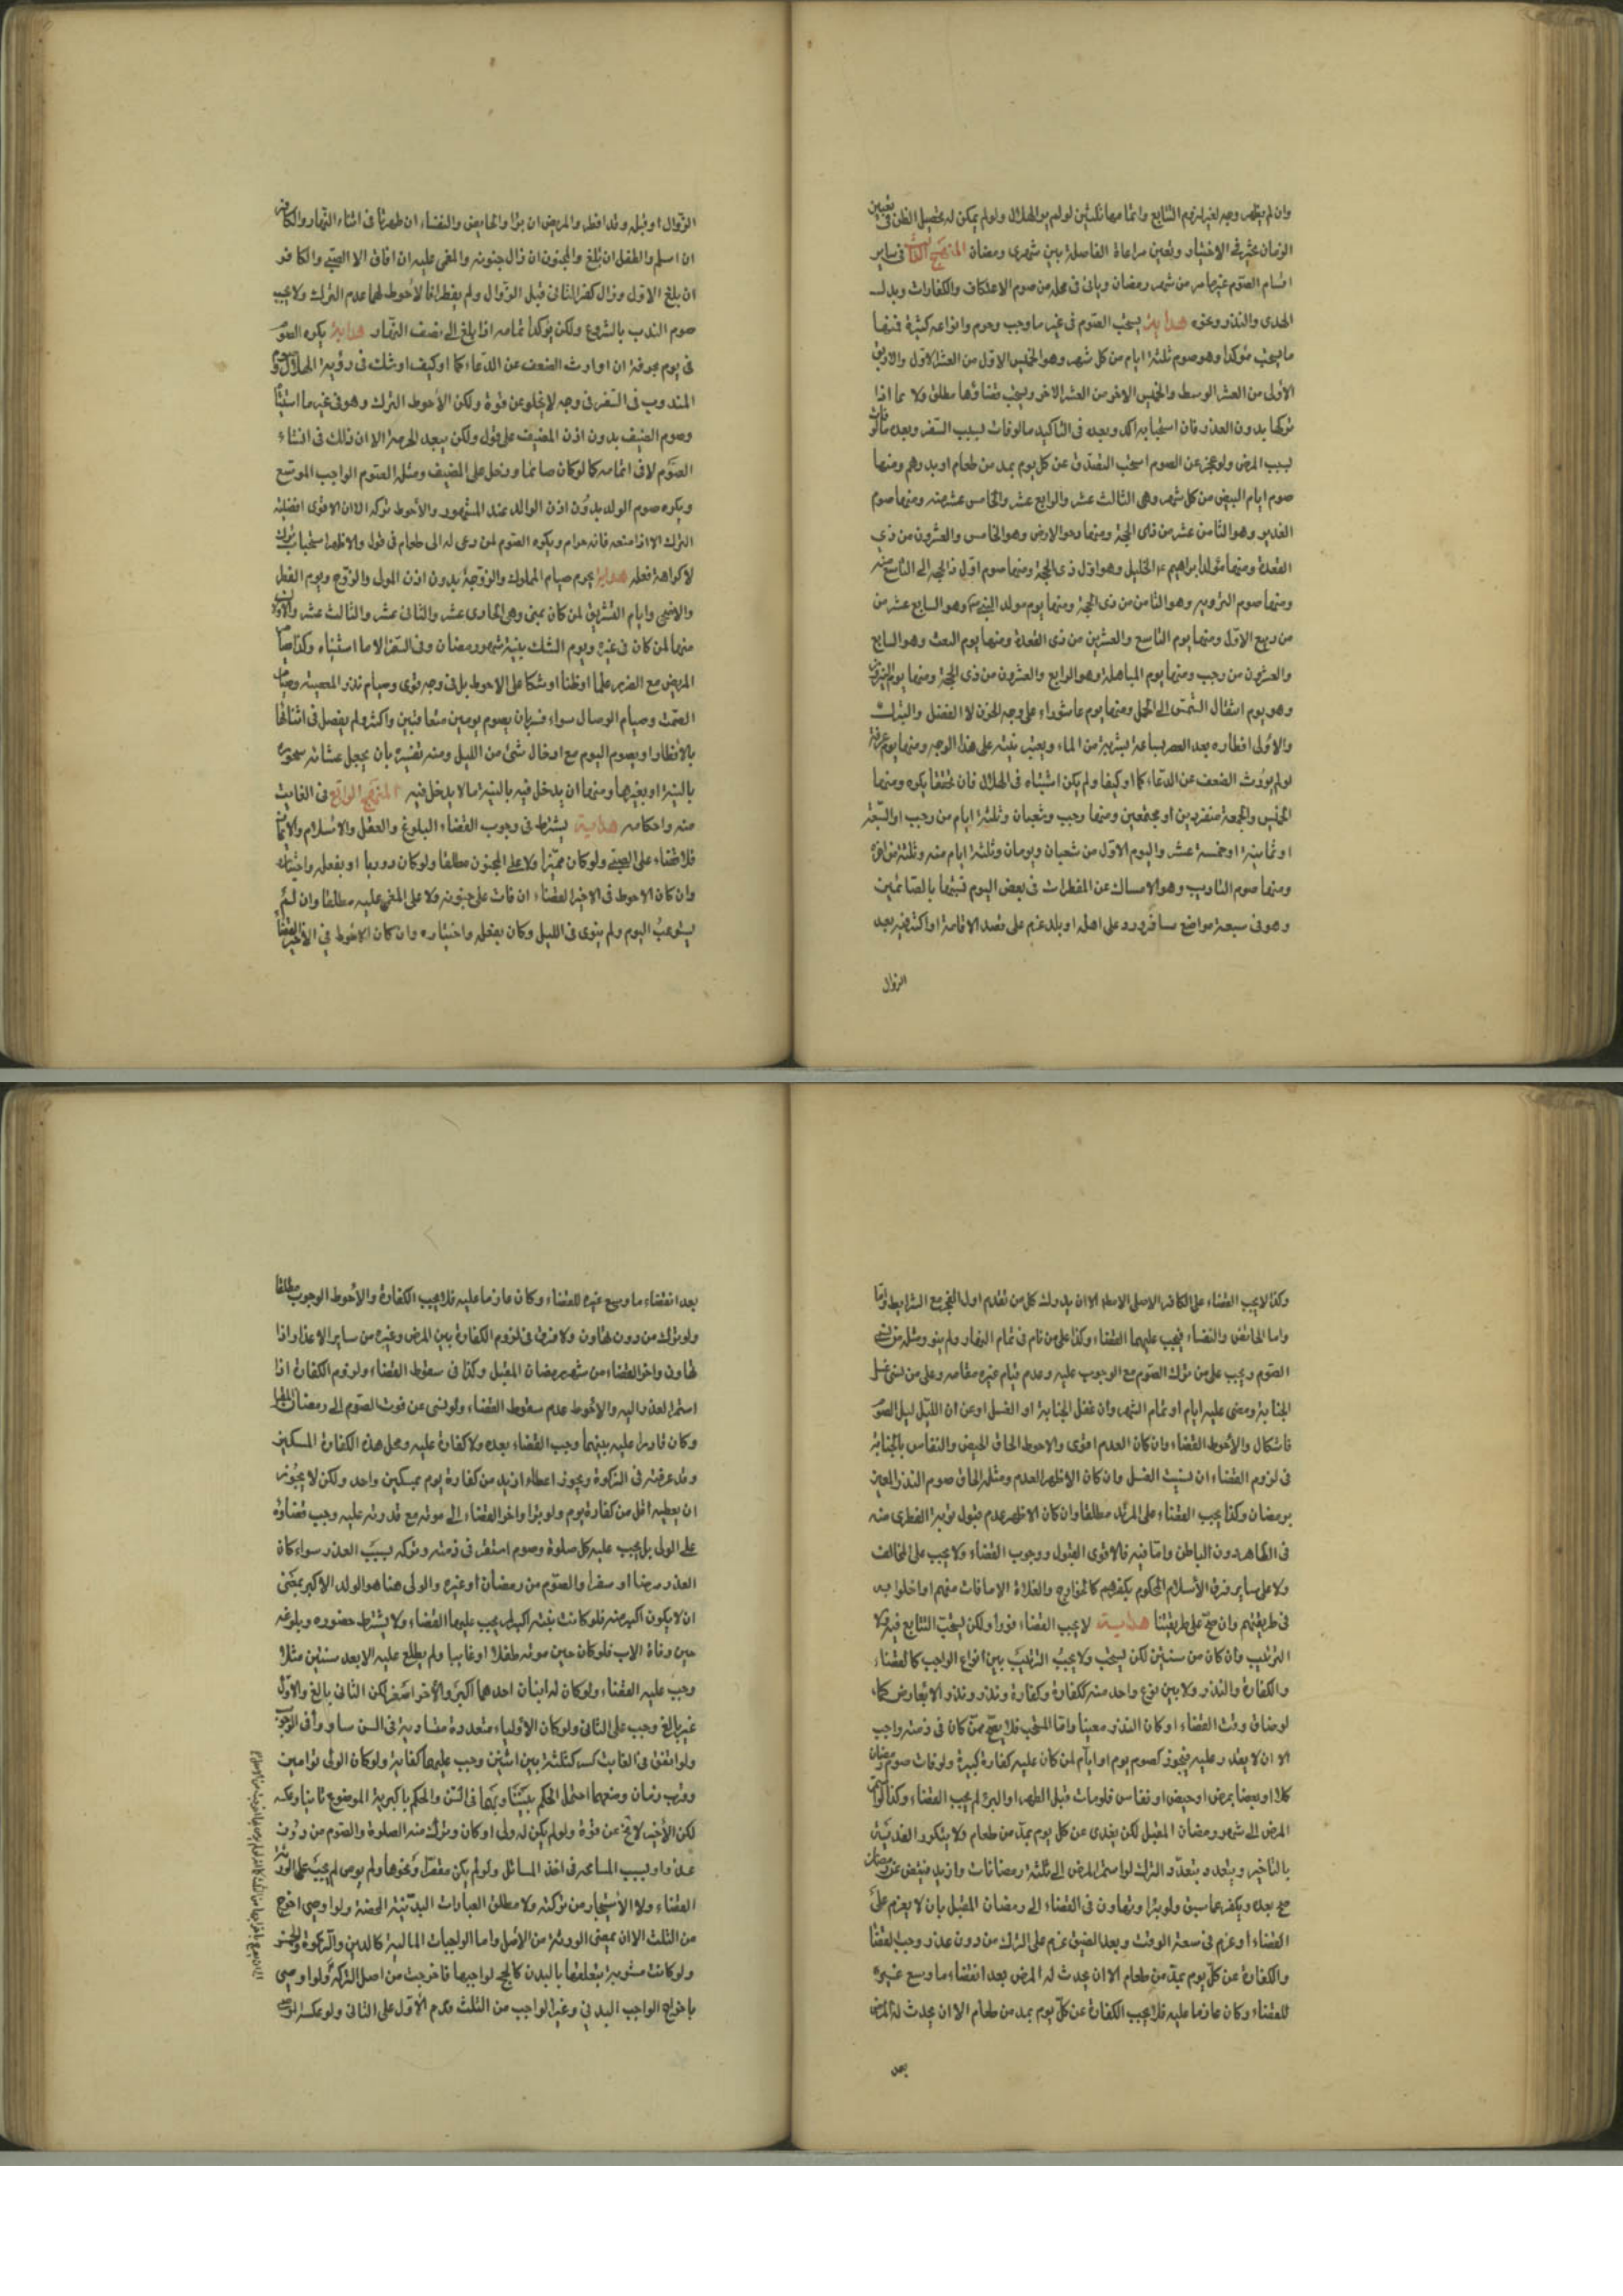 وان لم يظهر وجه لغير لزم التتابع واتمامها ثلثين لو لم ير الهلال ولو لم يمكن له تحصيل الظن في تعيين
الزمان تخير في الاختيار وتعين مراعاة الفاصلة بين شهرى رمضان المنهج الثالث في ساير
اقسام الصوم غير ما مر من شهر رمضان وياتى في محله من صوم الاعتكاف والكفارات وبدل
الهدى والنذر ونحوه هداية يستحب الصوم في غير ما وجب وحرم وانواعه كثيرة فمنها
ما يستحب مؤكدا وهو صوم ثلثة ايام من كل شهر وهو الخميس الاول من العشر الاول والاربعا
الاولى من العشر الوسط والخميس الاخر من العشر الاخر ويستحب قضاؤها مطلق ولا سيما اذا
تركها بدون العذر فان استحبابه اكد وبعده في التاكيد ما لو فات لسبب السفر وبعده ما لو فات
لسبب المرض ولو عجز عن الصوم استحب التصدق عن كل يوم بمد من طعام او بدرهم ومنها
صوم ايام البيض من كل شهر وهى الثالث عشر والرابع عشر والخامس عشر منه ومنها صوم
الغدير وهو الثامن عشر من ذى الحجة ومنها دحو الارض وهو الخامس والعشرون من ذي
القعدة ومنها مولد ابراهيم الخليل وهو اول ذى الحجة ومنها صوم اول ذالحجة الى التاسع منه
ومنها صوم التروية وهو الثامن من ذى الحجة ومنها يوم مولد النبي وهو السابع عشر من
من ربيع الاول ومنها يوم التاسع والعشرين من ذى القعدة ومنها يوم البعث وهو السابع
والعشرون من رجب ومنها يوم المباهلة وهو الرابع والعشرون من ذى الحجة ومنها يوم النيروز
وهو يوم انتقال الشمس الى الحمل ومنها يوم عاشوراء على وجه الحزن لا الفضل والتبرك
والاولى افطاره بعد العصر بساعة بشربة من الماء ويعتبر نيته على هذا الوجه ومنها يوم عرفة
لو لم يورث الضعف عن الدعاء كما او كيفا ولم يكن اشتباه في الهلال فان تحققا يكره ومنها
الخميس والجمعة منفردين او مجتمعين ومنها رجب وشعبان وثلثة ايام من رجب او السبعة
او ثمانية او خمسة عشر واليوم الاول من شعبان ويومان وثلثة ايام منه وثلثة من اخره
ومنها صوم التاديب وهو الامساك عن المفطرات في بعض اليوم تشبها بالصائمين
وهو فى سبعة مواضع مسافر ورد على اهله او بلد عزم على قصد الاقامة او اكثر فيه بعد
الزوال
الزوال او قبله وقد افطر والمريض ان برا والحايض والنفساء ان طهرتا في اثناء النهار والكافر
ان اسلم والطفل ان بلغ والمجنون ان زال جنونه والمغمى عليه ان افاق الا الصبي والكافر
ان بلغ الاول وزال كفر الثانى قبل الزوال ولم يفطرا فالاحوط لهما عدم الترك ولا يجب
صوم الندب بالشروع ولكن يؤكد اتمامه اذا بلغ الى نصف النهار هداية يكره الصوم
فى يوم عرفة ان اورث الضعف عن الدعاء كما او كيف او شك في رؤية الهلال وصوم
المندوب في السفر في وجه لا يخلو من قوة ولكن الاحوط الترك وهو في غير ما استثنا
وصوم الضيف بدون اذن المضيف على قول ولكن يبعد الحرمة الا ان ذلك في انشاء
الصوم لا في اتمامه كما لو كان صائما ودخل على المضيف ومثله الصوم الواجب الموسع
ويكره صوم الولد بدون اذن الوالد عند المشهور والاحوط تركه الا ان الاقوى افضلية
الترك الا اذا منعه فانه حرام ويكره الصوم لمن دعى له الى طعام في قول والاظهر استحباب تركه
لا كراهة فعله هداية يحرم صيام المملوك والزوجة بدون اذن المولى والزوج ويوم الفطر
والاضحى وايام التشريق لمن كان بمنى وهي الحادى عشر والثانى عشر والثالث عشر والاولان
منها لمن كان في غيره ويوم الشك بنية شهر رمضان وفي السفر الا ما استثناه وكذا صيام
المريض مع الضرر علما او ظنا او شكا على الاحوط بل في وجه قوى وصيام نذر المعصية وصيام
الصمت وصيام الوصال سواء فسر بان يصوم يومين متعاقبين واكثر ولم يفصل في اثنائها
بالافطار او يصوم اليوم مع ادخال شئ من الليل ومنه تفسيره بان يجعل عشائه سحوره
بالنية او بغيرها ومنها ان يدخل فيه بالنية ما لا يدخل فيه المنهج الرابع في الفايت
منه واحكامه هداية يشترط فى وجوب القضاء البلوغ والعقل والاسلام والايمان
فلا قضاء على الصبي ولو كان مميزا ولا على المجنون مطلقا ولو كان دوريا او بفعله واختياره
وان كان الاحوط في الاخير القضاء ان فات على جنونه ولا على المغمى عليه مطلقا وان لم
يستوعب اليوم ولم ينوى في الليل وكان بفعله واختياره وان كان الاحوط في الاخير القضا
وكذا لا يجب القضاء على الكافر الاصلى الاصلى الا ان يدرك كل من تقدم اول الفجر مع الشرايط واما
واما الحائض والنفساء فيجب عليهما القضاء وكذا على من نام في تمام النهار ولم ينو ومثله من نسى
الصوم ويجب على من ترك الصوم مع الوجوب عليه وعدم قيام غيره مقامه وعلى من نسى غسل
الجنابة ومضى عليه ايام او تمام الشهر وان غفل الجنابة او الغسل او عن ان الليل ليل الصوم
فاشكال والاحوط القضاء وان كان العدم اقوى والاحوط الحاق الحيض والنفاس بالجنابة
فى لزوم القضاء ان نسيت الغسل وان كان الاظهر العدم ومثله الحاق صوم النذر المعين
برمضان وكذا يجب القضاء على المرتد مطلقا وان كان الاظهر عدم قبول توبة الفطرى منه
في الظاهر دون الباطن واما فيه فالاقوى القبول ووجوب القضاء ولا يجب على المخالف
ولا على ساير فرق الاسلام المحكوم بكفرهم كالخوارج والغلاة الا ما فات منهم او اخلوا به
في طريقتهم وان صح على طريقتنا هداية لا يجب القضاء فورا ولكن يستحب التتابع فيه ولا
الترتيب وان كان من سنتين لكن يستحب ولا يجب الترتيب بين انواع الواجب كالقضاء
والكفارة والنذر ولا بين نوع واحد منه ككفارة وكفارة ونذر ونذر الا بعارض كما
لو ضاق وقت القضاء او كان النذر معينا واما المستحب فلا يصح ممن كان في ذمته واجب
الا ان لا يقدر عليه فيجوز كصوم يوم او ايام لمن كان عليه كفارة كبيرة ولو فات صوم رمضان
كلا او بعضا بمرض او حيض او نفاس فلو مات قبل الطهر او البرء لم يجب القضاء وكذا لو استمر
المرض الى شهر رمضان المقبل لكن يفدى عن كل يوم بمد من طعام ولا يتكرر الفدية
بالتاخير ويتعدد بتعدد الترك لو استمر المرض الى ثلثة رمضانات وازيد فيقضى عن رمضان
صح بعده ويكفر عما سبق ولو برا وتهاون في القضاء الى رمضان المقبل بان لا يعزم على
القضاء او عزم في سعة الوقت وبعد الضيق عزم على الترك من دون عذر وجب القضا
والكفارة عن كل يوم بمد من طعام الا ان يحدث له المرض بعد انقضاء ما وسع غيره
للقضاء وكان عازما عليه فلا يجب الكفارة عن كل يوم بمد من طعام الا ان يحدث له المرض
بعد
بعد انقضاء ما وسع غيره للقضاء وكان عازما عليه فلا يجب الكفارة والاحوط الوجوب مطلقا
ولو ترك من دون تهاون ولا فرق في لزوم الكفارة بين المرض وغيره من ساير الاعذار اذا
تهاون واخر القضاء من شهر رمضان المقبل وكذا في سقوط القضاء ولزوم الكفارة اذا
استمر العذر اليه والاحوط عدم سقوط القضاء ولو نسى عن فوت الصوم الى رمضان المقبل
وكان قادرا عليه بينهما وجب القضاء بعده ولا كفارة عليه ومحل هذه الكفارة المسكين
وقد عرفته في الزكوة ويجوز اعطاء ازيد من كفارة يوم بمسكين واحد ولكن لا يجوز
ان يعطيه اقل من كفارة يوم ولو برا واخر القضاء الى موته مع قدرته عليه وجب قضاؤه
على الولى بل يجب عليه كل صلوة وصوم استقر في ذمته وتركه بسبب العذر سواء كان
العذر مرضا او سفرا والصوم من رمضان او غيره والولى هنا هو الولد الاكبر بمعنى
ان لا يكون اكبر منه فلو كانت بنته اكبر لم يجب عليها القضاء ولا يشترط حضوره وبلوغه
حين وفاة الاب فلو كان حين موته طفلا او غايبا ولم يطلع عليه الا بعد سنتين مثلا
وجب عليه القضاء ولو كان له ابنان احدهما اكبر والاخر اصغر لكن الثانى بالغ والاول
غير بالغ وجب على الثانى ولو كان الاولياء متعددة متساوية في السن ساووا في الوجوب
ولو اتفق في الفايت كسر كثلثة بين اثنين وجب عليهما كفاية ولو كان الولى توامين
وقرب زمان وضعهما احتمل الحكم بتساويهما في السن والحكم باكبرية الموضوع ثانيا وعكسه
لكن الاخير لا يخ عن قوة ولو لم يكن له ولى او كان وترك منه الصلوة والصوم من دون
عذر او بسبب المسامحة في اخذ المسائل ولو لم يكن مفصلا ونحوها ولم يوص لم يجب على الورثة
القضاء ولا الاستيجار من تركته ولا مطلق العبادات البدنية المحضة ولو اوصى اخرج
من الثلث الا ان يمضى الورثة من الاصل واما الواجبات المالية كالدين والزكوة والخمس
ولو كانت مشوبة بتعلقها بالبدن كالحج لواجبها فاخرجت من اصل التركة ولو اوصى
باخراج الواجب البدني وغير الواجب من الثلث قدم الاول على الثانى ولو عكس الموصى